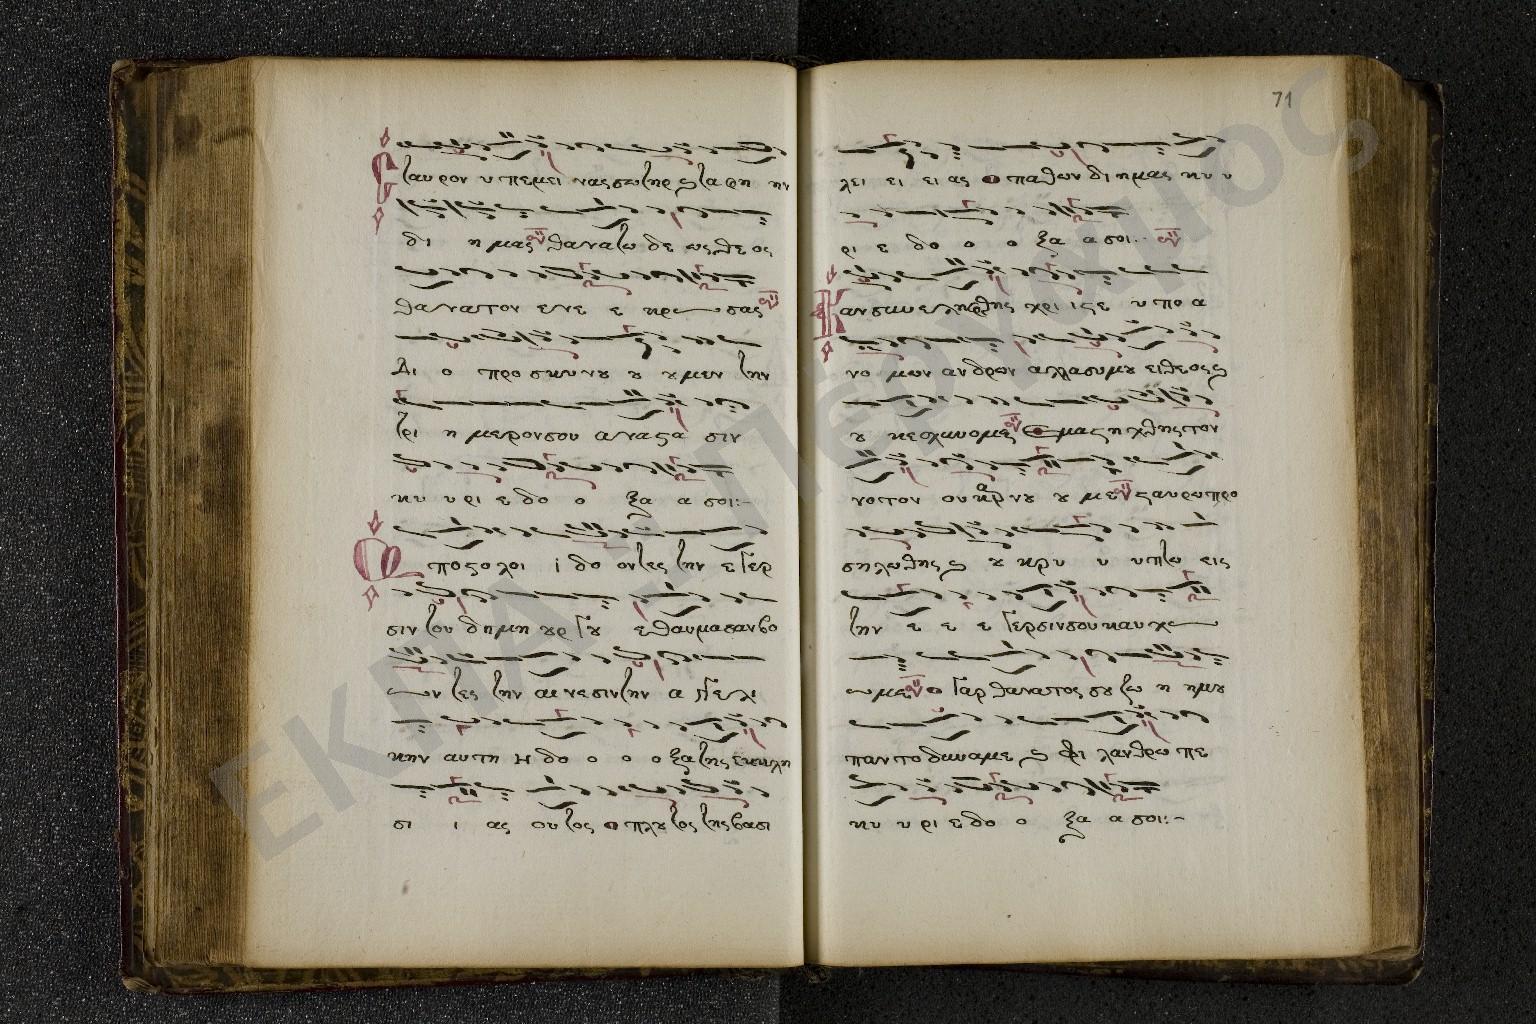 Σταυρον υπεμεινας σωτηρ ϗ ταφη ην
δι η μας θανατω δε ως θεος
θανατον ενε ε κρω σας
Δι ο προσκυνου ου ουμεν την
τρι η μερον σου αναστα σιν
κυ υρι ε δο ο ξα α σοι:-
Αποστολοι ι δο οντες την εγερ
σιν του δημη ουρ γου εθαυμασαν βο
ων τες την αινεσιν την αγγελι
κην αυτη Η δο ο ο ο ξα της εκκλη
σι ι ας ουτος ο πλουτος της βασι
71
λει ει ει ας ο παθων δι ημας κυ υ
ρι ε δο ο ο ξα α σοι:-
Καν συνεληφθης χρι ιστε υπο α
νο μων ανδρων αλλα συ μου ει θεος ϗ
ου κ εσχυνομε εμαστηχθης τον
νοτον ουκ αρ νου ου με σταυρω προ
σηλωθης ϗ ου κρυ υ υπτω εις
την ε ε ε γερσιν σου καυ χω
ωμε ο γαρ θανατος σου ζω η η μου
παντοδυναμε ϗ φι λανθρω πε
κυ υ ρι ε δο ο ξα α σοι:-
ΕΚΠΑ / Περγαμος